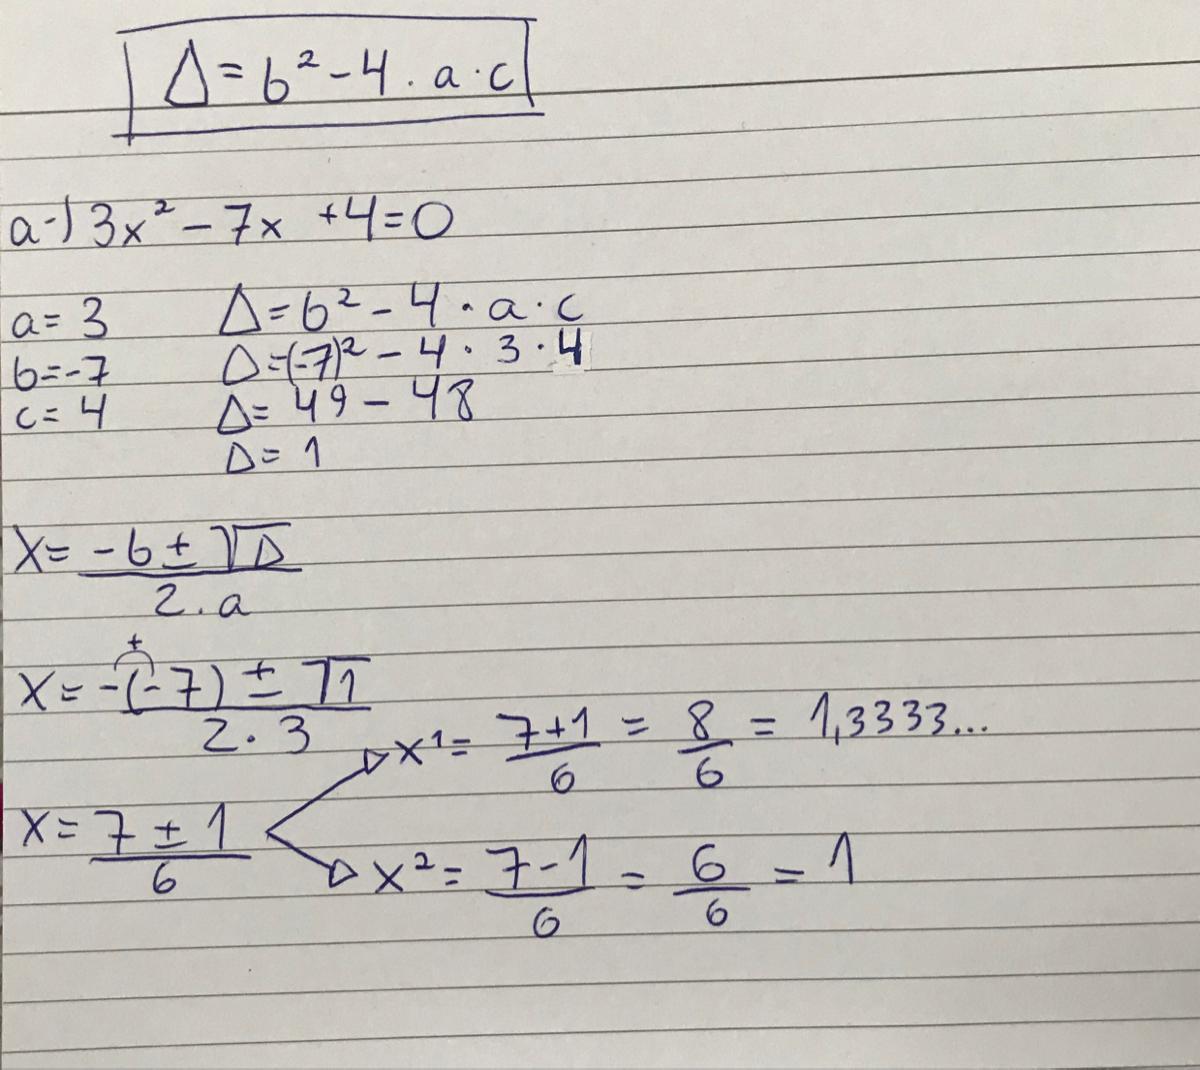 Δ = b² - 4 . a . c
a-) 3x² - 7x + 4 = 0
a = 3 Δ = b² - 4 . a . c
b = -7 Δ = (-7)² - 4 . 3 . 4
c = 4 Δ = 49 - 48
Δ = 1
X = -b ± √Δ / 2 . a
X = -(-7) ± √1 / 2 . 3
+
X = 7 ± 1 / 6
x¹ = 7+1 / 6 = 8/6 = 1,3333...
x² = 7-1 / 6 = 6/6 = 1